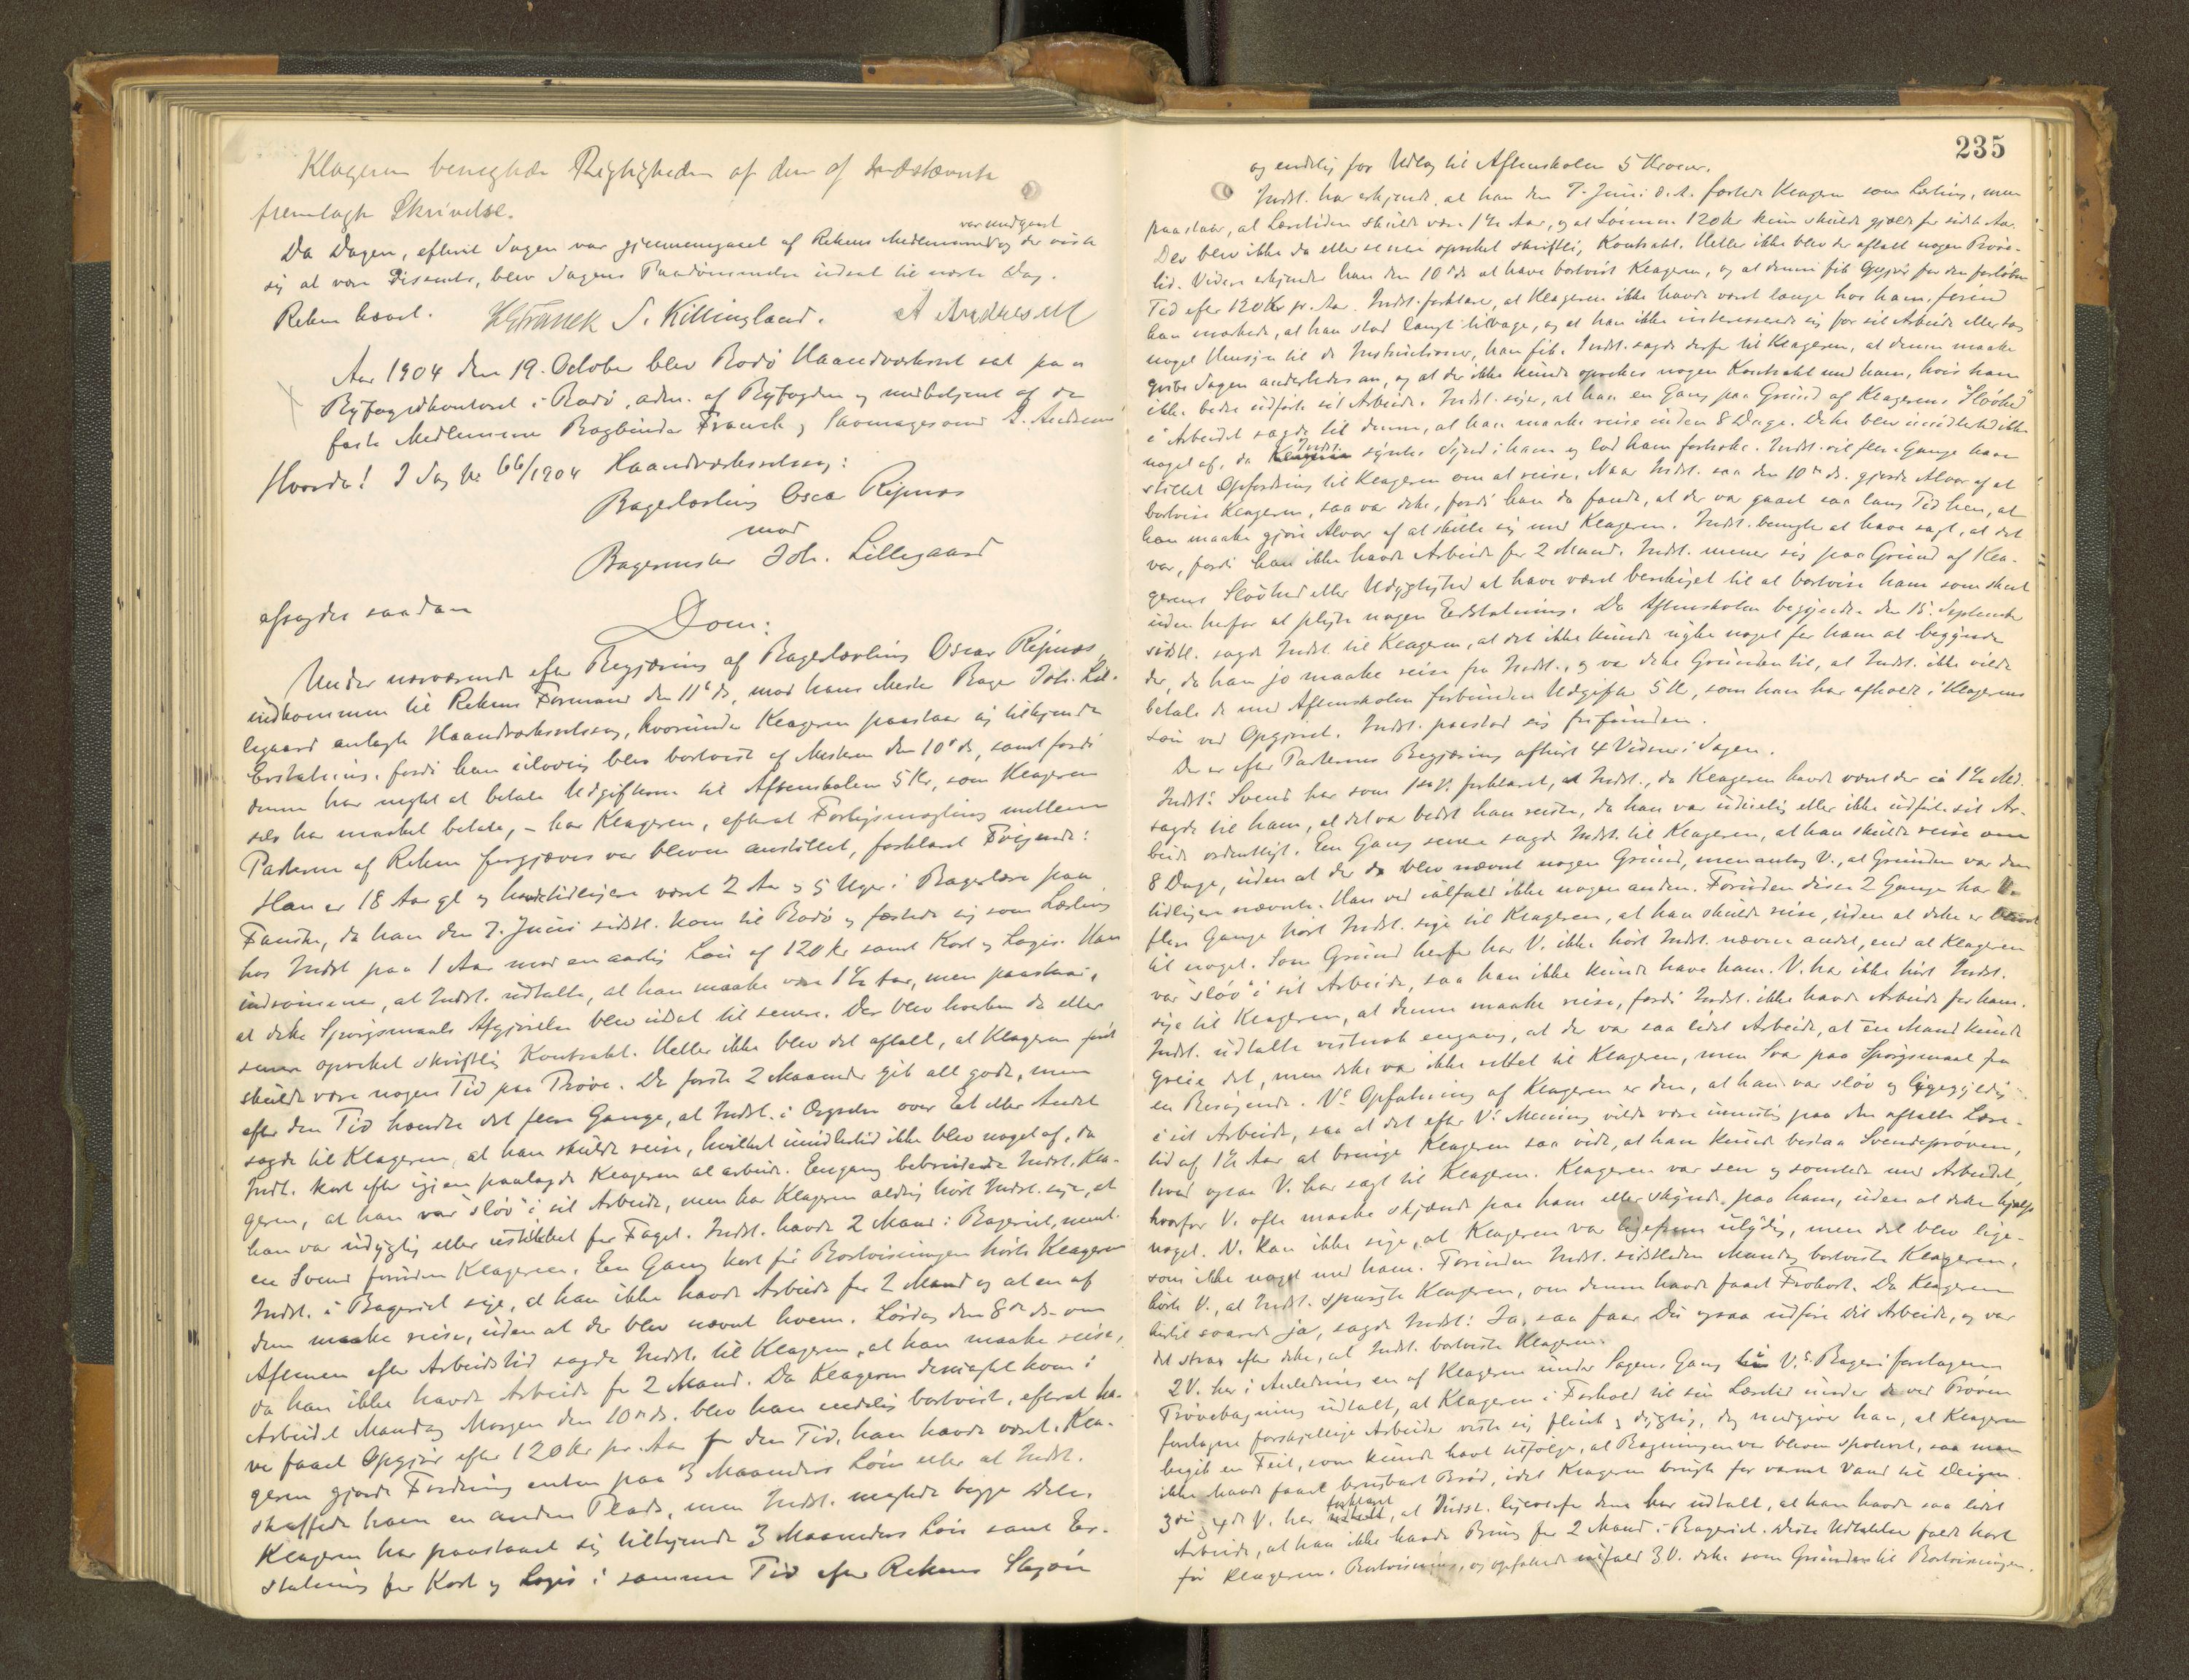 Klageren benegtede Rigtigheden af den af Indstævnte
fremlagte Skrivelse.
var medgaaet
Da Dagen, efterat Sagen var gjennemgaaet af Rettens Medlemmer og der viste
sig at være Dissents, blev Sagens Paadømmelse udsat til næste Dag.
Retten hævet. HFranck S. Killingland. A Andresen
Aar 1904 den 19. October blev Bodø Haandværksret sat paa
Byfogedkontoret i Bodø, adm. af Byfogden og medbetjent af de
faste Medlemmer Bogbinder Franck og Skomagersvend A. Andresen
Hvorda! I Sag No 66/1904 Haandværksretssag:
Bagerlærling Oscar Ripnæs
mod
Bagermester Joh. Lillegaard
afsagdes saadan
Dom:
Under nærværende efter Begjæring af Bagerlærling Oscar Ripnæs,
indkommen til Rettens Formand den 11te ds, mod hans Mester Bager Joh. Lil-
legaard anlagte Haandværksretssag, hvorunder Klageren paastaar sig tilkjendt
Erstatning, fordi han ulovlig blev bortvist af Mesteren den 10de ds, samt fordi
denne har negtet at betale Udgifterne til Aftenskolen 5 Kr, som Klageren
selv har maattet betale, – har Klageren, efterat Forligsmægling mellem
Parterne af Retten forgjæves var bleven anstillet, forklaret Følgende:
Han er 18 Aar gl og havde tidligere været 2 Aar og 5 Uger i Bagerlære paa
Fauske, da han den 7. Juni sidstl. kom til Bodø og fæstede sig som Lærling
hos Indst paa 1 Aar mod en aarlig Løn af 120 kr samt Kost og Logis. Han
indrømmer, at Indst. udtalte, at han maatte være 1½ Aar, men paastaar,
at dette Spørgsmaals Afgjørelse blev udsat til senere. Der blev hverken da eller
senere oprettet skriftlig Kontrakt. Heller ikke blev det aftalt, at Klageren først
skulde være nogen Tid paa Prøve. De første 2 Maaneder gik alt godt, men
efter den Tid hændte det flere Gange, at Indst. i Ærgrelse over Et eller Andet
sagde til Klageren, at han skulde reise, hvilket imidlertid ikke blev noget af, da
Indst. kort efter igjen paalagde Klageren at arbeide. Engang bebreidede Indst. Kla-
geren, at han var "sløv" i sit Arbeide, men har Klageren aldrig hørt Indst. sige, at
han var udygtig eller uskikket for Faget. Indst. havde 2 Mand i Bageriet, neml.
en Svend foruden Klageren. En Gang kort før Bortvisningen hørte Klageren
Indst. i Bageriet sige, at han ikke havde Arbeide for 2 Mand og at en af
dem maatte reise, uden at der blev nævnt hvem. Lørdag den 8de ds om
Aftenen efter Arbeidstid sagde Indst. til Klageren, at han maatte reise,
da han ikke havde Arbeide for 2 Mand. Da Klageren desuagtet kom i
Arbeidet Mandag Morgen den 10de ds. blev han endelig bortvist, efterat ha-
ve faaet Opgjør efter 120 kr pr. Aar for den Tid, han havde været. Kla-
geren gjorde Fordring enten paa 3 Maaneders Løn eller at Indst.
skaffede ham en anden Plads, men Indst. negtede begge Dele.
Klageren har paastaaet sig tilkjendt 3 Maaneders Løn samt Er-
statning for Kost og Logis i samme Tid efter Rettens Skjøn
235
og endelig for Udlæg til Aftenskolen 5 Kroner.
Indst. har erkjendt, at han den 7. Juni d.A. fæstede Klageren som Lærling, men
paastaar, at Læretiden skulde være 1½ Aar, og at Lønnen 120 kr kun skulde gjælde for sidste Aar.
Der blev ikke da eller senere oprettet skriftlig Kontrakt. Heller ikke blev der aftalt nogen Prøve-
tid. Videre erkjender han den 10de ds at have bortvist Klageren, og at denne fik Opgjør for den forløbne
Tid efter 120 Kr pr. Aar. Indst. forklarer, at Klageren ikke havde været længe hos ham, førend
han mærkede, at han stod langt tilbage, og at han ikke interesserede sig for sit Arbeide eller tog
noget Hensyn til de Instruktioner, han fik. Indst. sagde derfor til Klageren, at denne maatte
gribe Sagen anderledes an, og at der ikke kunde oprettes nogen Kontrakt med ham, hvis han
ikke bedre udførte sit Arbeide. Indst. siger, at han en Gang paa Grund af Klagerens "Sløvhed"
i Arbeidet sagde til denne, at han maatte reise inden 8 Dage. Dette blev imidlertid ikke
Indst.
noget af, da Klageren syntes Synd i ham og lod ham fortsætte. Indst. vil flere Gange have
stillet Opfordring til Klageren om at reise. Naar Indst. saa den 10de ds. gjorde Alvor af at
bortvise Klageren, saa var dette, fordi han da fandt, at der var gaaet saa lang Tid hen, at
han maatte gjøre Alvor af at skille sig med Klageren. Indst. benegter at have sagt, at det
var, fordi han ikke havde Arbeide for 2 Mand. Indst. mener sig paa Grund af Kla-
gerens Sløvhed eller Udygtighed at have været berettiget til at bortvise ham som skeet
uden herfor at pligte nogen Erstatning. Da Aftenskolen begyndte den 15. September
sidstl. sagde Indst til Klageren, at det ikke kunde nytte noget for ham at begynde
der, da han jo maatte reise fra Indst., og var dette Grunden til, at Indst. ikke vilde
betale de med Aftenskolen forbundne Udgifter 5 Kr, som han har afholdt i Klagerens
Løn ved Opgjøret. Indst. paastod sig frifunden.
Der er efter Parternes Begjæring afhørt 4 Vidner i Sagen.
Indst.s Svend har som 1ste V. forklaret, at Indst., da Klageren havde været der ca 1½ Md.
sagde til ham, at det var bedst han reiste, da han var uduelig eller ikke udførte sit Ar-
beide ordentligt. En Gang senere sagde Indst. til Klageren, at han skulde reise om
8 Dage, uden at der da blev nævnt nogen Grund, men antog V., at Grunden var den
tidligere nævnte. Han ved ialfald ikke nogen anden. Foruden disse 2 Gange har V.
flere Gange hørt Indst. sige til Klageren, at han skulde reise, uden at dette er blevet
til noget. Som Grund herfor har V. ikke hørt Indst. nævne andet, end at Klageren
var "sløv" i sit Arbeide, saa han ikke kunde have ham. V. har ikke hørt Indst.
sige til Klageren, at denne maatte reise, fordi Indst. ikke havde Arbeide for ham.
Indst. udtalte vistnok engang, at der var saa lidet Arbeide, at én Mand kunde
greie det, men dette var ikke rettet til Klageren, men Svar paa Spørgsmaal fra
en Besøgende. V.s Opfatning af Klageren er den, at han var sløv og ligegyldig
i sit Arbeide, saa at det efter V.s Mening vilde være umulig paa den aftalte Lære-
tid af 1½ Aar at bringe Klageren saa vidt, at han kunde bestaa Svendeprøven,
hvad ogsaa V. har sagt til Klageren. Klageren var sen og somlede med Arbeidet,
hvorfor V. ofte maatte skjænde paa ham eller skynde paa ham, uden at dette hjalp
noget. V. kan ikke sige, at Klageren var ligefrem ulydig, men det blev lige-
som ikke noget med ham. Forinden Indst. sidstleden Mandag bortviste Klageren,
hørte V., at Indst. spurgte Klageren, om denne havde faaet Frokost. Da Klageren
hertil svarede ja, sagde Indst: Ja, saa faar Du ogsaa udføre dit Arbeide, og var
det strax efter dette, at Indst. bortviste Klageren.
2 V. har i Anledning en af Klageren under Sagens Gang i V.s Bageri foretagen
Prøvebagning udtalt, at Klageren i Forhold til sin Læretid under de ved Prøven
foretagne forskjellige Arbeider viste sig flink og dygtig, dog medgiver han, at Klageren
begik en Feil, som kunde havt tilfølge, at Bagningen var bleven spoleret, saa man
ikke havde faaet brugbart Brød, idet Klageren brugte for varmt Vand til Deigen.
forklaret
3die og 4de V. har udtalt, at Indst. ligeoverfor dem har udtalt, at han havde saa lidet
Arbeide, at han ikke havde Brug for 2 Mand i Bageriet. Disse Udtalelser faldt kort
før Klagerens Bortvisning, og opfattede ialfald 3 V. dette som Grunden til Bortvisningen.